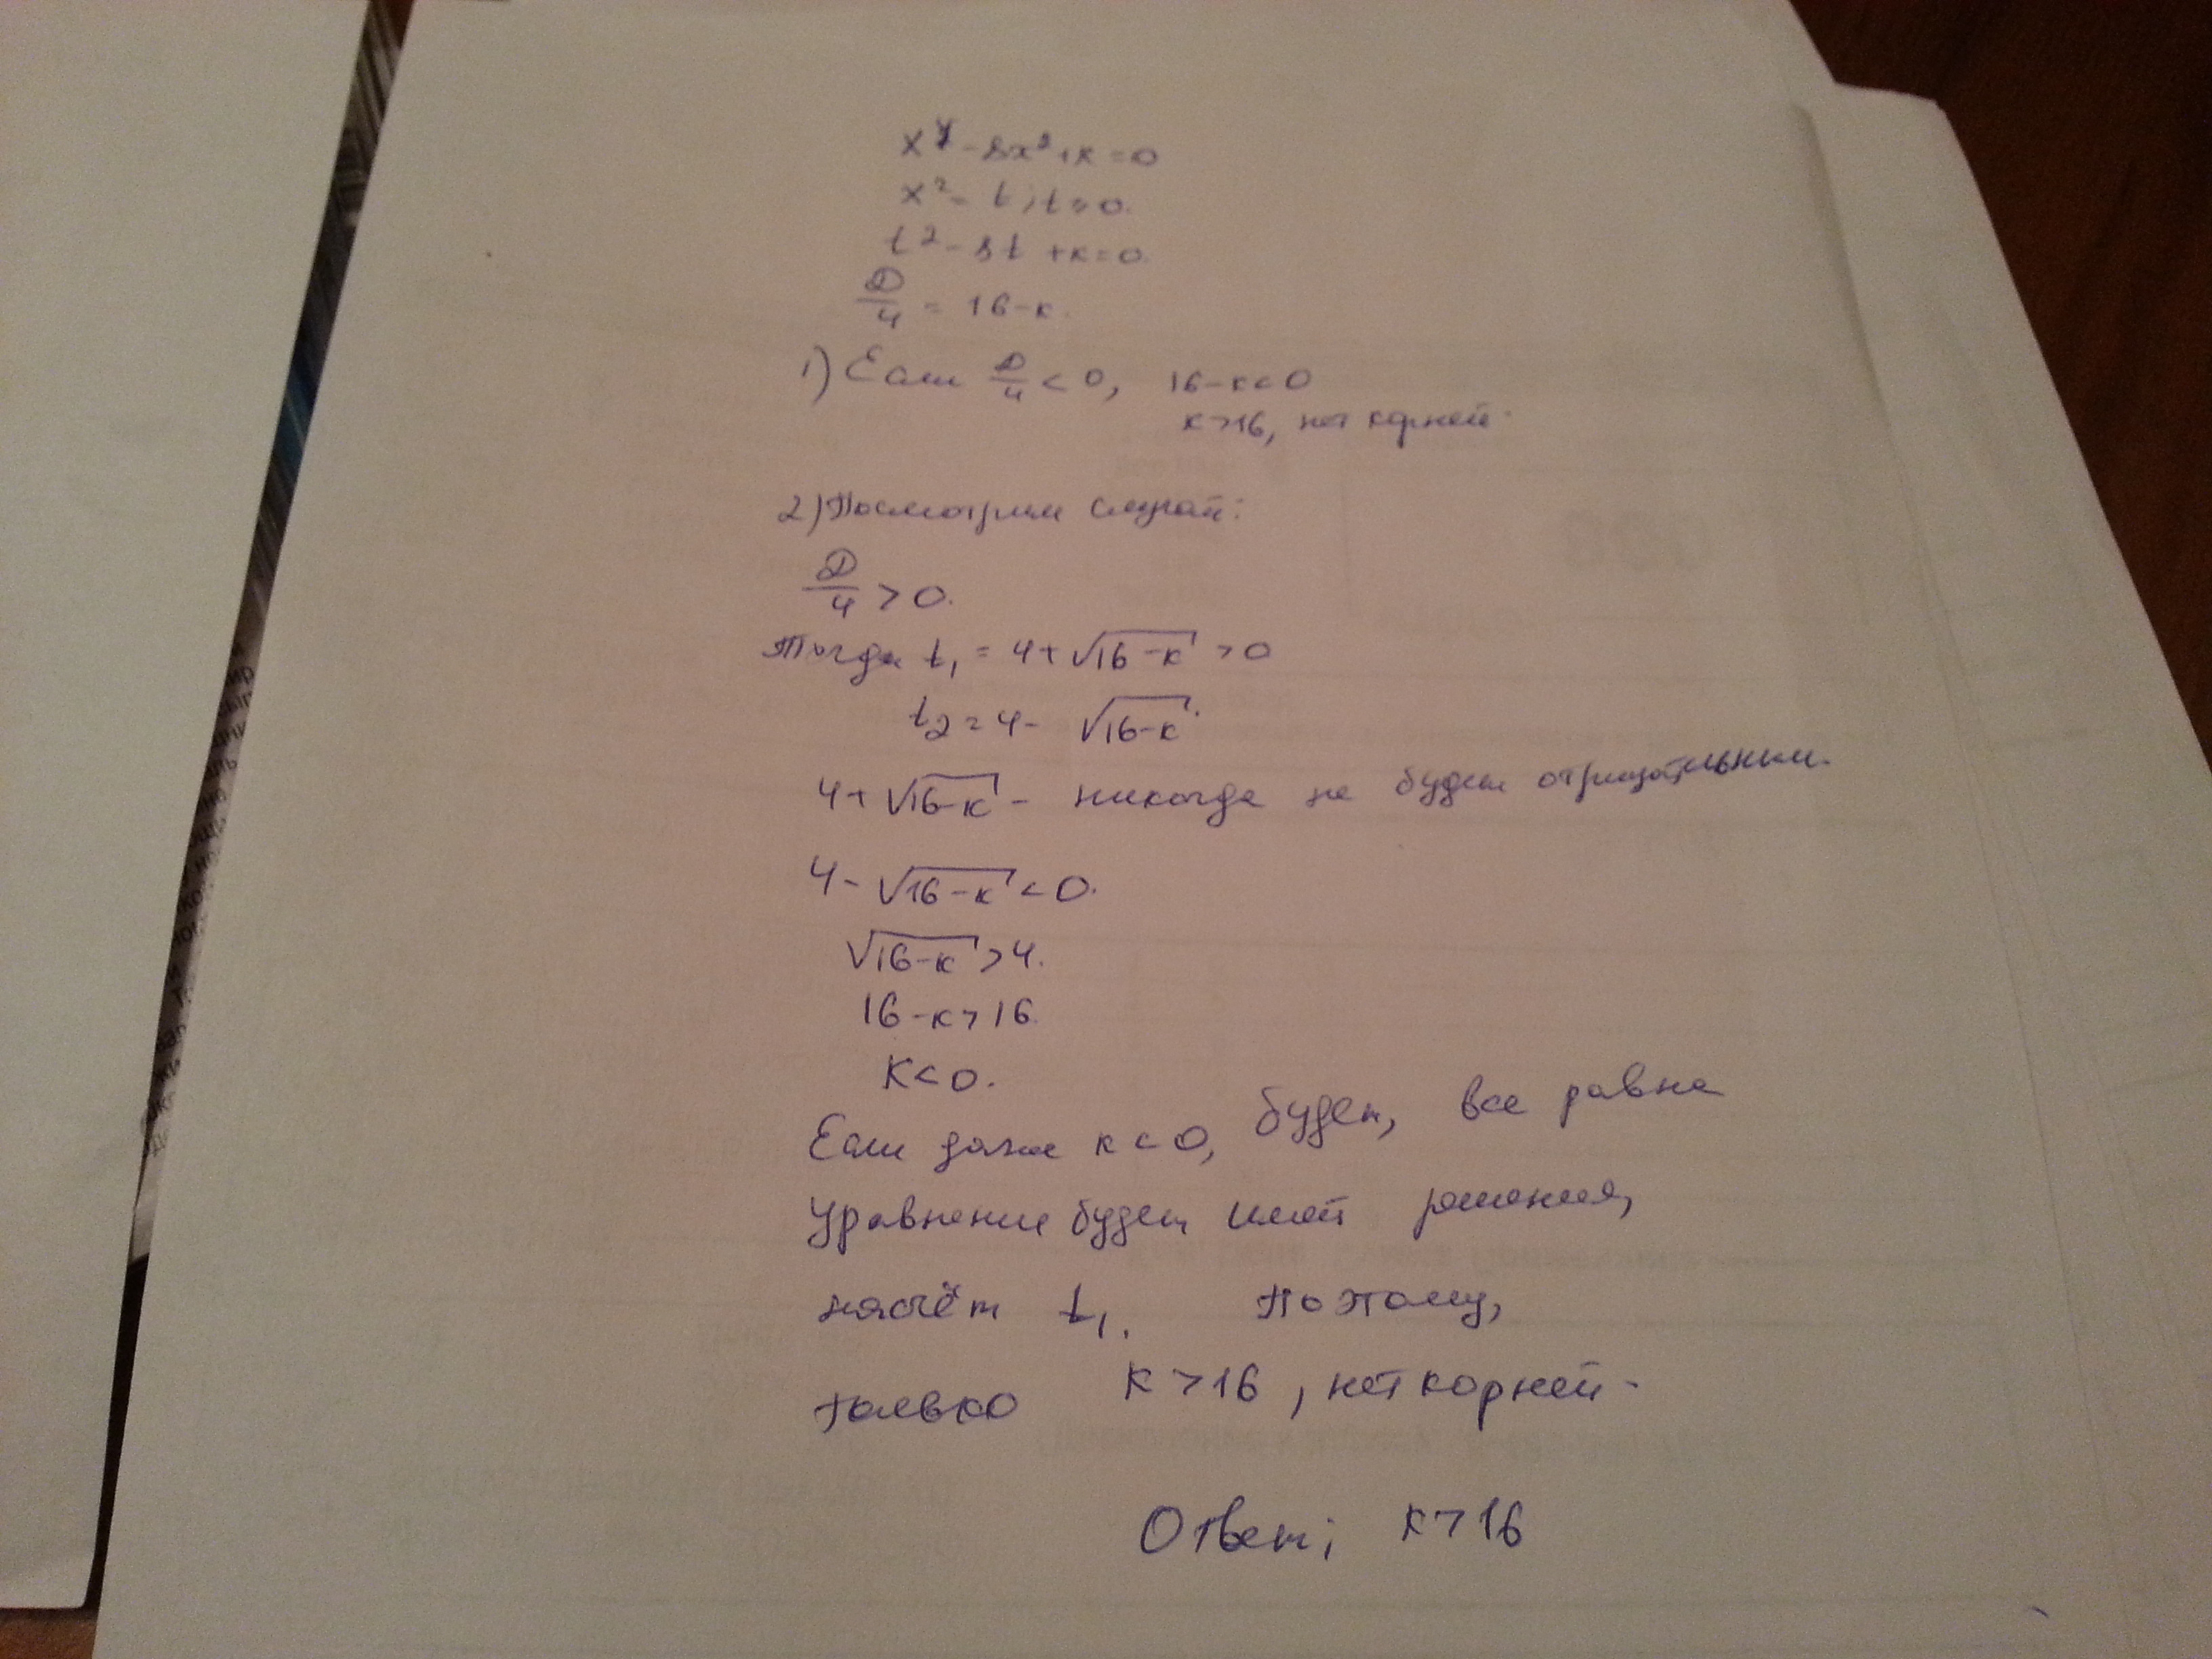 x⁴ - 8x² + k = 0
x² = t; t ≥ 0.
t² - 8t + k = 0.
D/4 = 16 - k.
1) Если D/4 < 0, 16 - k < 0
k > 16, нет корней.
2) Посмотрим случай:
D/4 > 0.
Тогда t₁ = 4 + √(16 - k) > 0
t₂ = 4 - √(16 - k).
4 + √(16 - k) - никогда не будет отрицательным.
4 - √(16 - k) < 0.
√(16 - k) > 4.
16 - k > 16.
k < 0.
Если даже k < 0, будет, все равно
уравнение будет имет решения,
насчёт t₁. Поэтому,
только k > 16, нет корней.
Ответ; k > 16